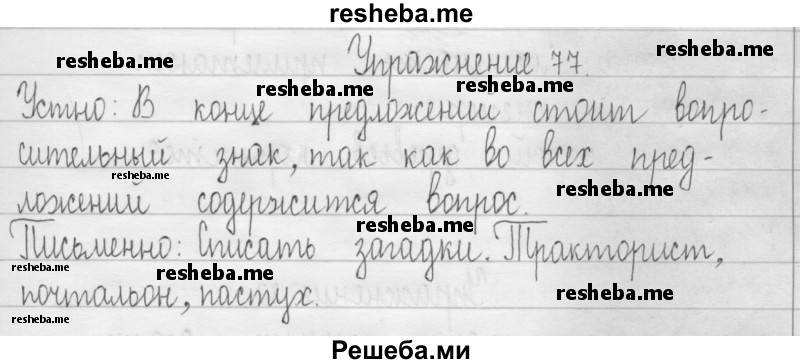 resheba.me
Упражнение 77.
resheba.me resheba.me
resheba.me resheba.me
Устно: В конце предложении стоит вопро-
сительный знак, так как во всех пред-
resheba.me resheba.me
ложений содержится вопрос.
resheba.me resheba.me
Письменно: Списать загадки. Тракторист,
resheba.me resheba.me
почтальон, пастух.
resheba.me resheba.me
Решеба.ми